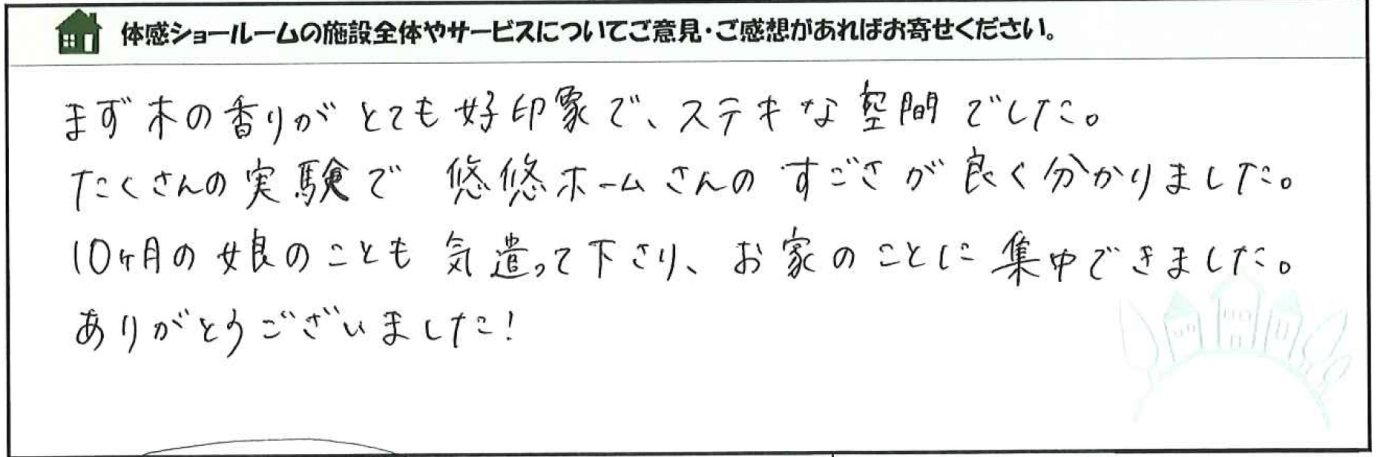 体感ショールームの施設全体やサービスについてご意見・ご感想があればお寄せください。
まず木の香りがとても好印象で、ステキな空間でした。
たくさんの実験で 悠悠ホームさんのすごさが良く分かりました。
10ヶ月の娘のことも気遣って下さり、お家のことに集中できました。
ありがとうございました!